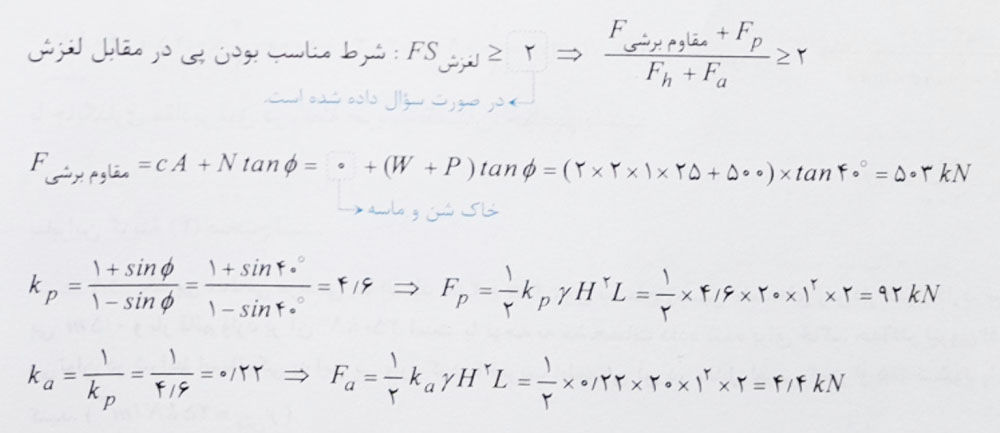 شرط مناسب بودن پی در مقابل لغزش : FS لغزش ≥ ۲ ⇒ (F مقاوم برشی + F_p) / (F_h + F_a) ≥ ۲
در صورت سؤال داده شده است.
F مقاوم برشی = cA + N tan ϕ = ۰ + (W + P) tan ϕ = (۲×۲×۱×۲۵+۵۰۰)×tan ۴۰° = ۵۰۳ kN
خاک شن و ماسه
k_p = (۱ + sin ϕ) / (۱ − sin ϕ) = (۱ + sin ۴۰°) / (۱ − sin ۴۰°) = ۴/۶ ⇒ F_p = ۱/۲ k_p γ H^۲ L = ۱/۲ × ۴/۶ × ۲۰ × ۱^۲ × ۲ = ۹۲ kN
k_a = ۱ / k_p = ۱ / ۴/۶ = ۰/۲۲ ⇒ F_a = ۱/۲ k_a γ H^۲ L = ۱/۲ × ۰/۲۲ × ۲۰ × ۱^۲ × ۲ = ۴/۴ kN